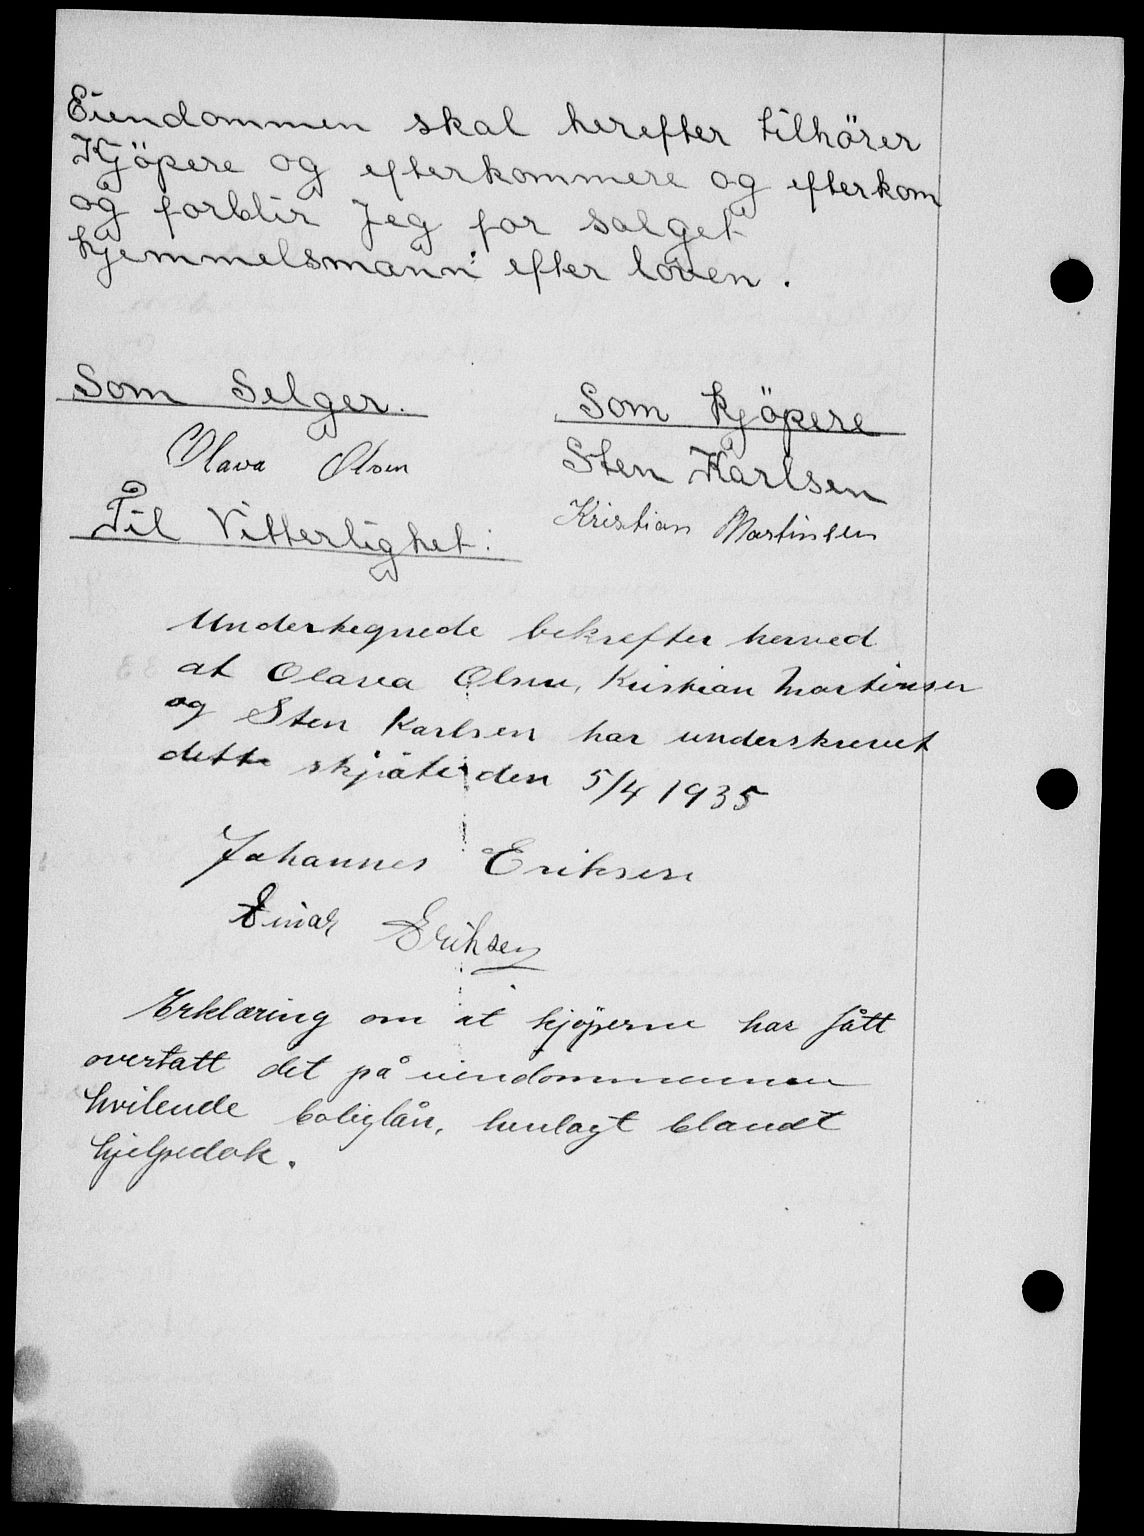 Eiendommen skal herefter tilhörer
Kjöpere og efterkommere og efterkom
og forblir Jeg for salget
hjemmelsmann efter loven.
Som Selger.
Olava Olsen
Som Kjöpere
Sten Karlsen
Kristian Martinsen
Til Vitterlighet:
Undertegnede bekrefter herved
at Olava Olsen, Kristian Martinsen
og Sten Karlsen har underskrevet
dette skjöte den 5/4 1935
Johannes Eriksen
Einar Eriksen
Erklæring om at kjöperne har fått
overtatt det på eiendommen
hvilende boliglån, henlagt blandt
hjelpedok.